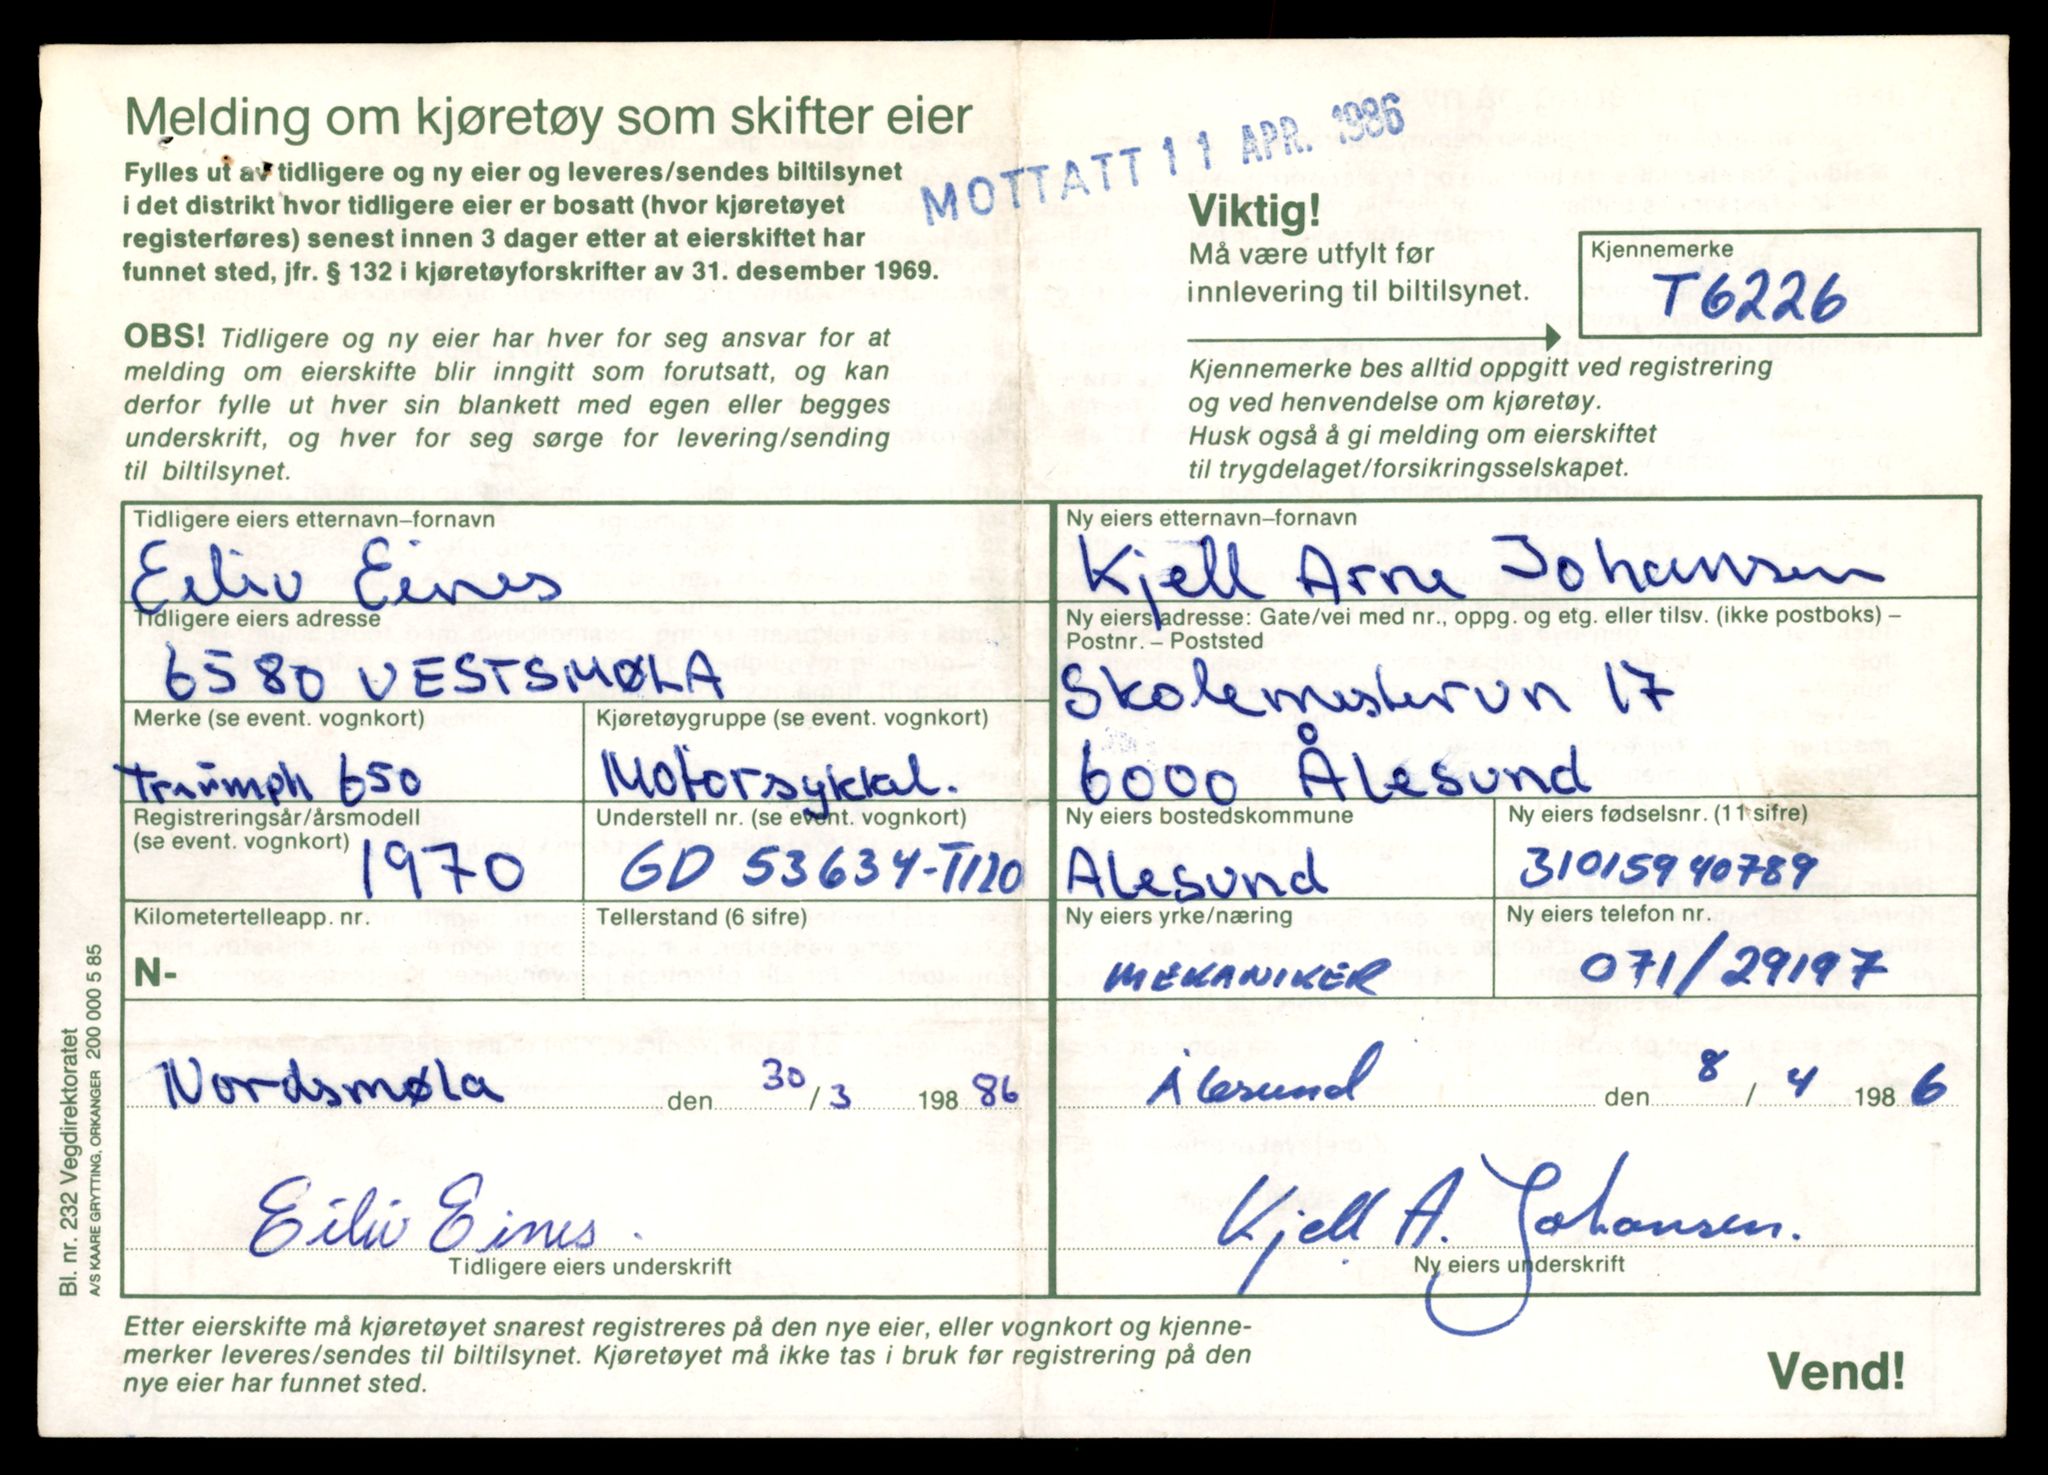 Melding om kjøretøy som skifter eier
Fylles ut av tidligere og ny eier og leveres/sendes biltilsynet
i det distrikt hvor tidligere eier er bosatt (hvor kjøretøyet
registerføres) senest innen 3 dager etter at eierskiftet har
funnet sted, jfr. § 132 i kjøretøyforskrifter av 31. desember 1969.
OBS! Tidligere og ny eier har hver for seg ansvar for at
melding om eierskifte blir inngitt som forutsatt, og kan
derfor fylle ut hver sin blankett med egen eller begges
underskrift, og hver for seg sørge for levering/sending
til biltilsynet.
MOTTATT 11 APR. 1986
Viktig!
Må være utfylt før
innlevering til biltilsynet.
Kjennemerke
T6226
Kjennemerke bes alltid oppgitt ved registrering
og ved henvendelse om kjøretøy.
Husk også å gi melding om eierskiftet
til trygdelaget/forsikringsselskapet.
Tidligere eiers etternavn–fornavn
Eiliv Eines
Tidligere eiers adresse
6580 VESTSMØLA
Merke (se event. vognkort)
Triumph 650
Kjøretøygruppe (se event. vognkort)
Motorsykkal.
Registreringsår/årsmodell
(se event. vognkort)
1970
Understell nr. (se event. vognkort)
GD 53634-T120
Kilometertelleapp. nr.
N-
Tellerstand (6 sifre)
Nordsmøla den 30/3 198 86
Eiliv Eines.
Tidligere eiers underskrift
Ny eiers etternavn–fornavn
Kjell Arne Johansen
Ny eiers adresse: Gate/vei med nr., oppg. og etg. eller tilsv. (ikke postboks) –
Postnr. – Poststed
Skolemestervn 17
6000 Ålesund
Ny eiers bostedskommune
Alesund
Ny eiers fødselsnr. (11 sifre)
31015940789
Ny eiers yrke/næring
MEKANIKER
Ny eiers telefon nr.
071/29197
Ålesund den 8/4 1986
Kjell A. Johansen.
Ny eiers underskrift
Etter eierskifte må kjøretøyet snarest registreres på den nye eier, eller vognkort og kjenne-
merker leveres/sendes til biltilsynet. Kjøretøyet må ikke tas i bruk før registrering på den
nye eier har funnet sted.
Vend!
Bl. nr. 232 Vegdirektoratet
A/S KAARE GRYTTING, ORKANGER 200 000 5 85